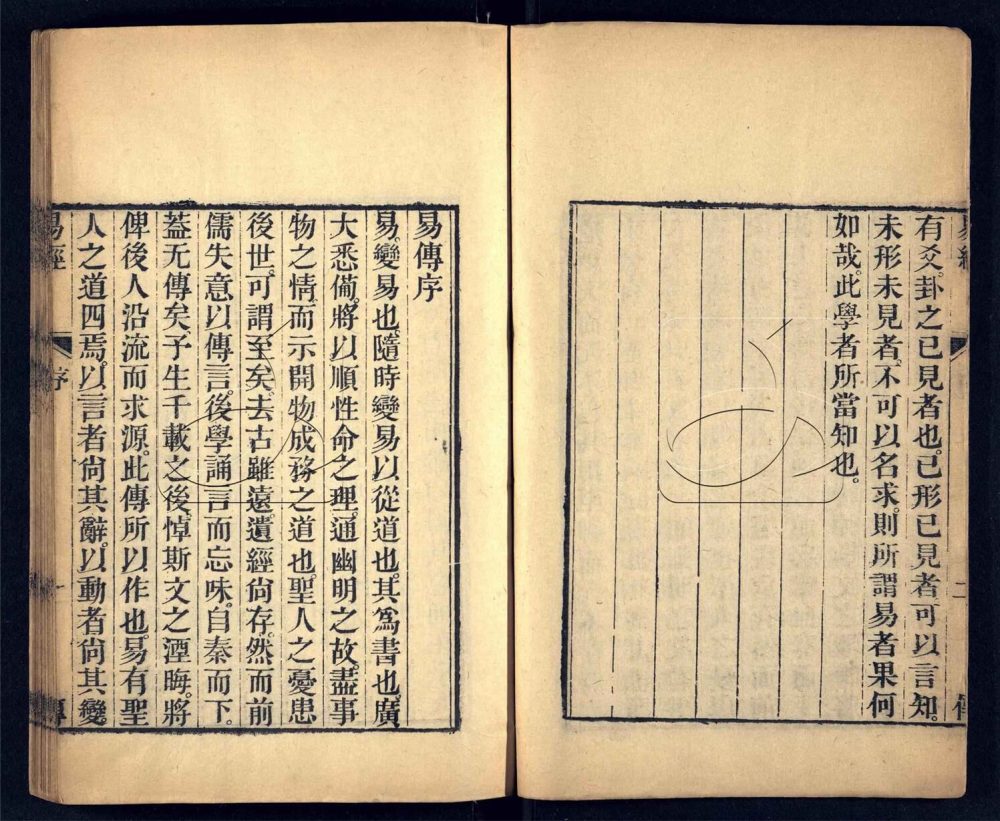 有爻卦之已見者也已形已見者可以言知
未形未見者不可以名求則所謂易者果何
如哉此學者所當知也
易傳序
易變易也隨時變易以從道也其為書也廣
大悉備將以順性命之理通幽明之故盡事
物之情而示開物成務之道也聖人之憂患
後世可謂至矣去古雖遠遺經尙存然而前
儒失意以傳言後學誦言而忘味自秦而下
蓋无傳矣予生千載之後悼斯文之湮晦將
俾後人沿流而求源此傳所以作也易有聖
人之道四焉以言者尙其辭以動者尙其變
易經 序 一